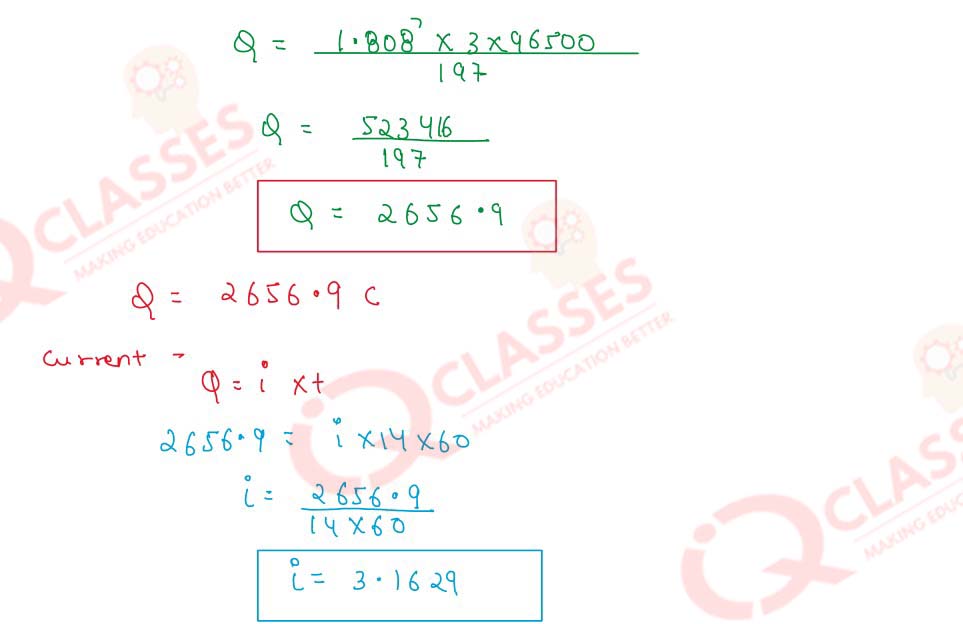 Q = 1.808 × 3 × 96500
197
Q = 523416
197
Q = 2656.9
Q = 2656.9 C
Current -
Q = i × t
2656.9 = i × 14 × 60
i = 2656.9
14 × 60
i = 3.1629
iQ CLASSES
MAKING EDUCATION BETTER
iQ CLASSES
MAKING EDUCATION BETTER
iQ CLASSES
MAKING EDUC